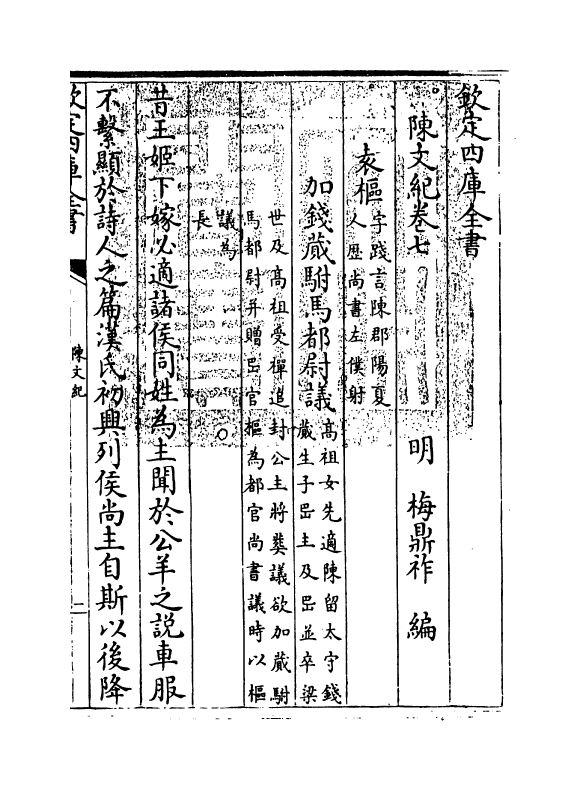 欽定四庫全書
陳文紀卷七
明 梅鼎祚 編
袁樞
字踐言陳郡陽夏
人歴尚書左僕射
加錢蕆駙馬都尉議
高祖女先適陳留太守錢
蕆生子岊主及岊並卒梁
世及髙祖受禪追封公主將葬議欲加蕆駙
馬都尉并贈岊官樞為都官尚書議時以樞
議為
長
昔王姬下嫁必適諸侯同姓為主聞於公羊之説車服
不繫顯於詩人之篇漢氏初興列侯尚主自斯以後降
欽定四庫全書
陳文紀